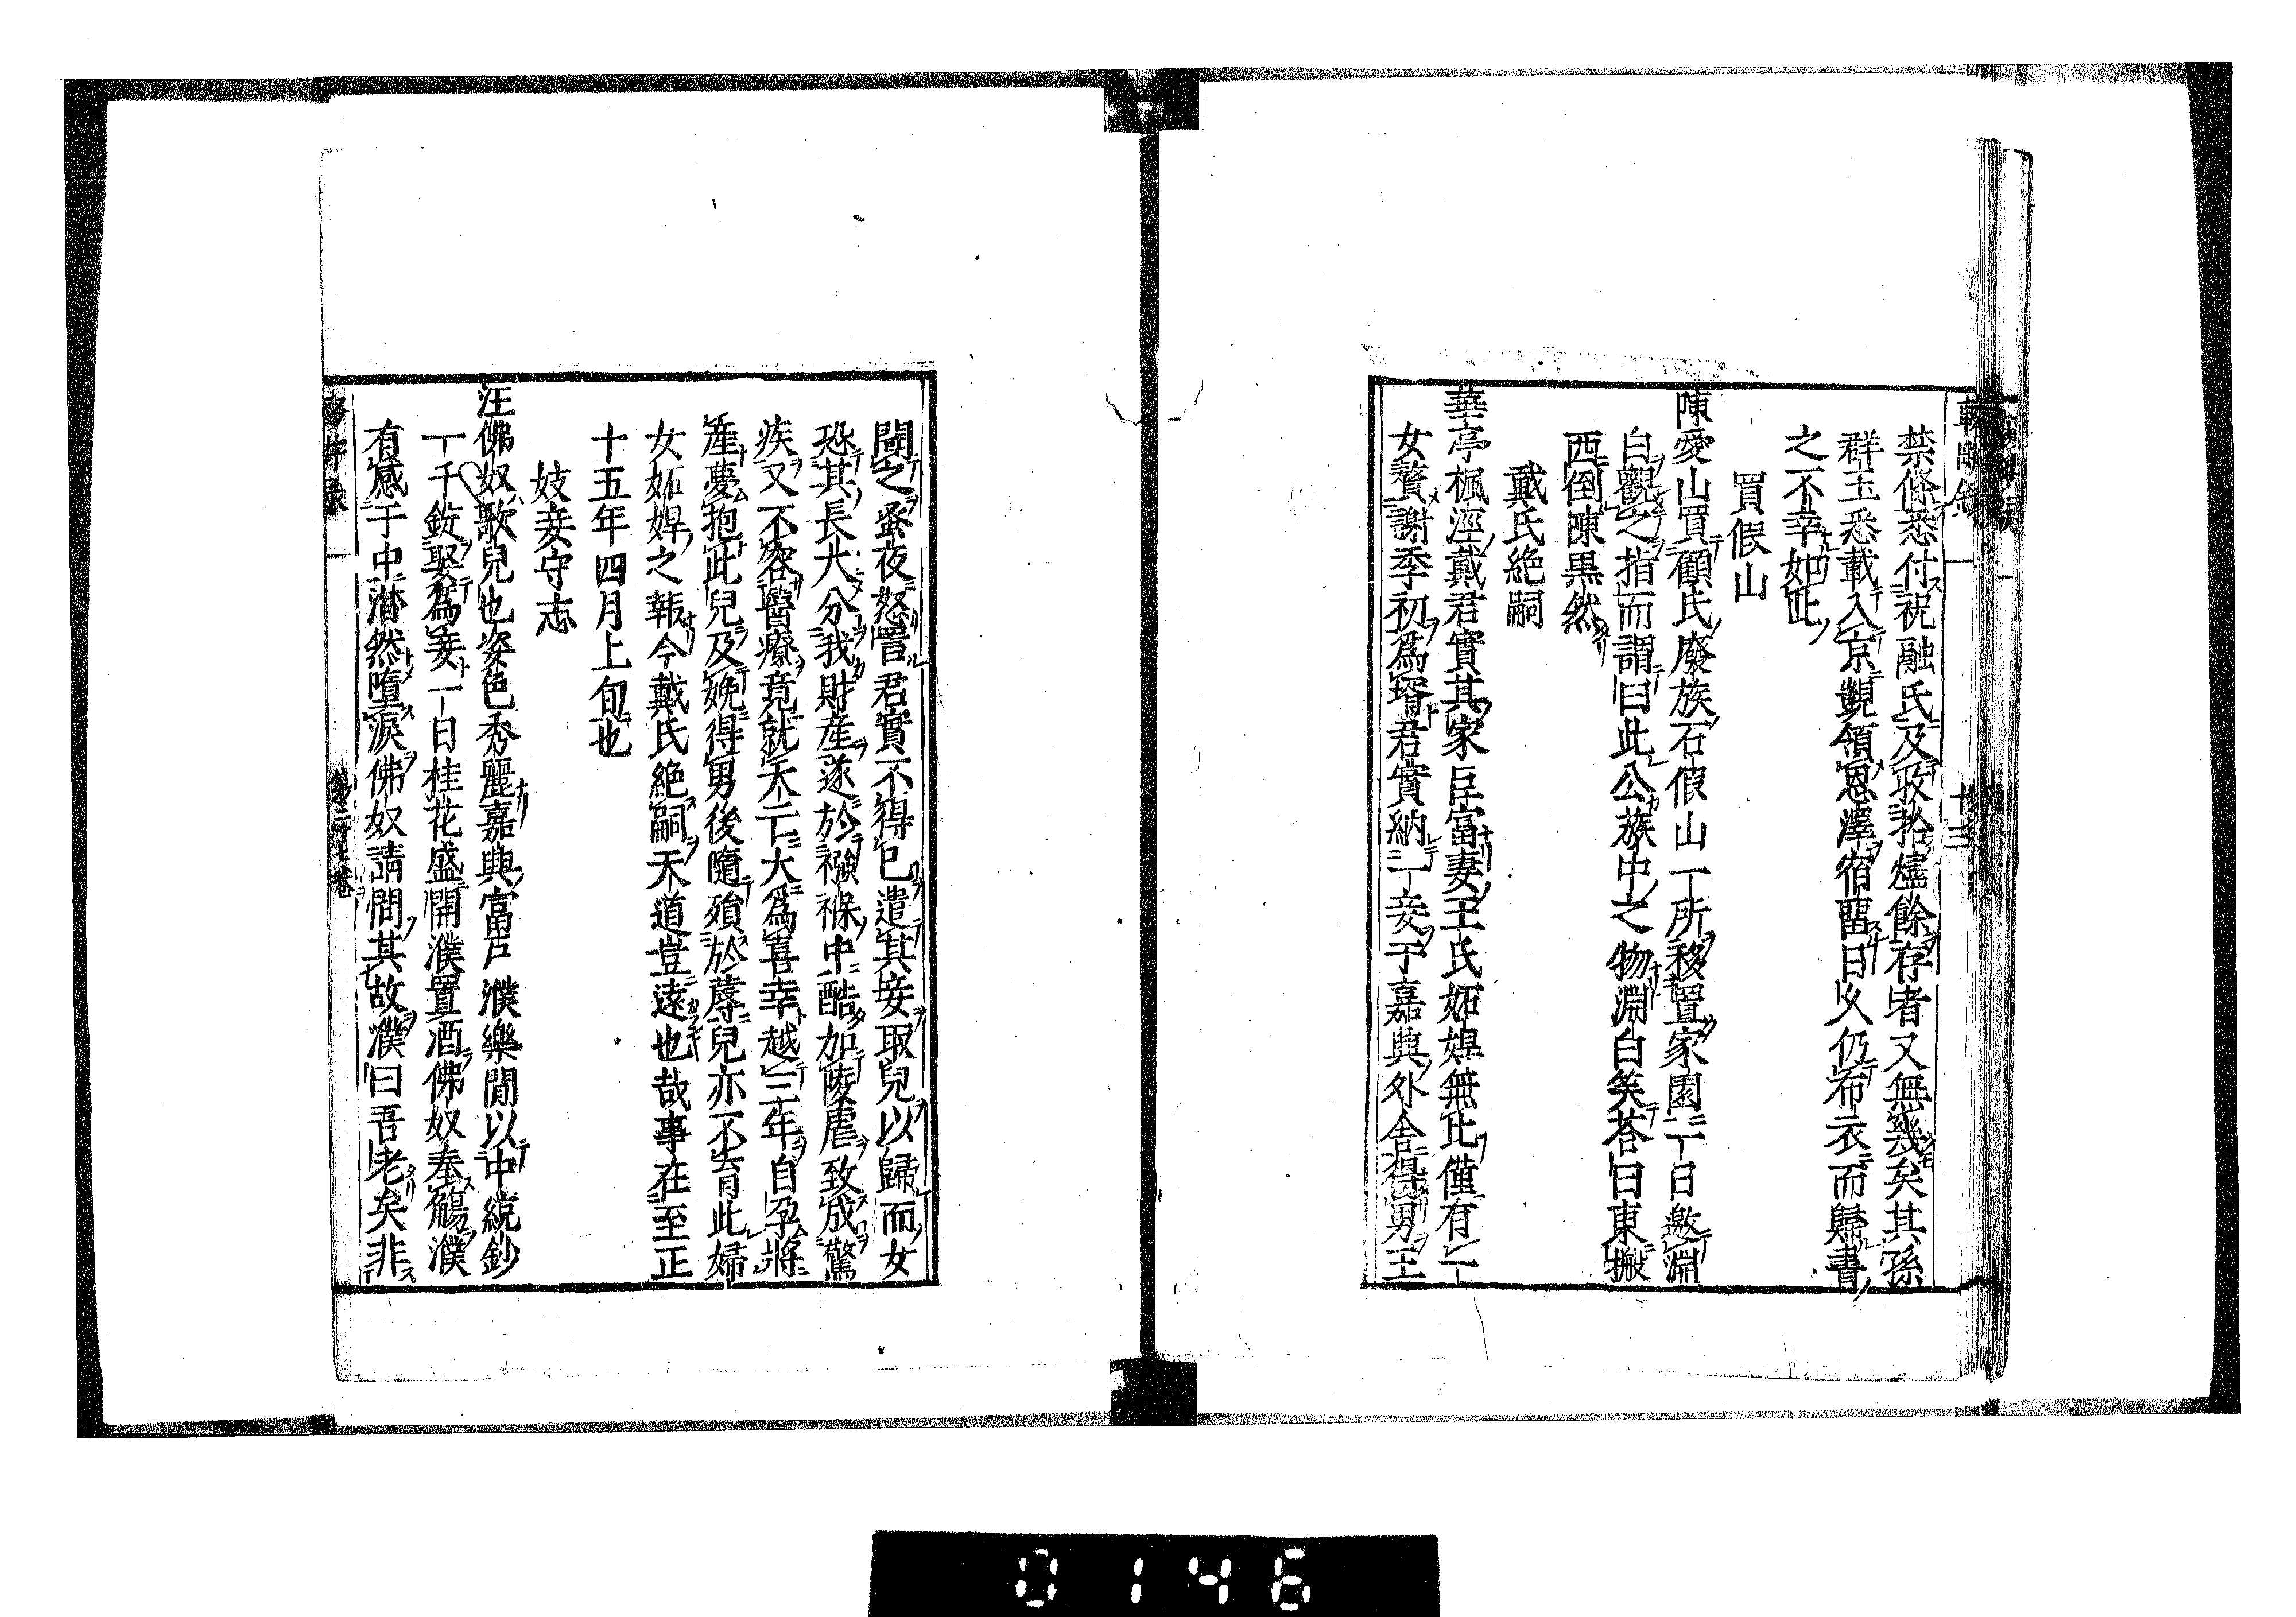 禁條悉付祝融氏及收拾燼餘存者又無幾矣其孫
群玉悉載入京覬領恩澤宿留日久仍布衣而歸書
之不幸如此
買假山
陳愛山買顧氏廢族石假山一所移置家園一日邀淵
白觀之指而謂曰此公族中之物淵白笑荅曰東搬
西倒陳黒然
戴氏絶嗣
華亭楓涇戴君實其家巨富妻王氏妬悍無比僅有一
女贅謝季初爲壻君實納一妾于嘉興外舍得男王
聞之蚤夜怒詈君實不得已遣其妾取兒以歸而女
恐其長大分我財産遂於襁褓中酷加陵虐致成驚
疾又不容醫療竟就夭亡大爲喜幸越三年自孕將
産夢抱此兒及娩得男後隨殞於蓐兒亦不育此婦
女妬悍之報今戴氏絶嗣天道豈遠也哉事在至正
十五年四月上旬也
妓妾守志
汪佛奴歌兒也姿色秀麗嘉興富戸濮樂閒以中統鈔
一千錠娶爲妾一日桂花盛開濮置酒佛奴奉觴濮
有感于中潸然墮涙佛奴請問其故濮曰吾老矣非
輟畊錄
十三
第二十七卷
0146